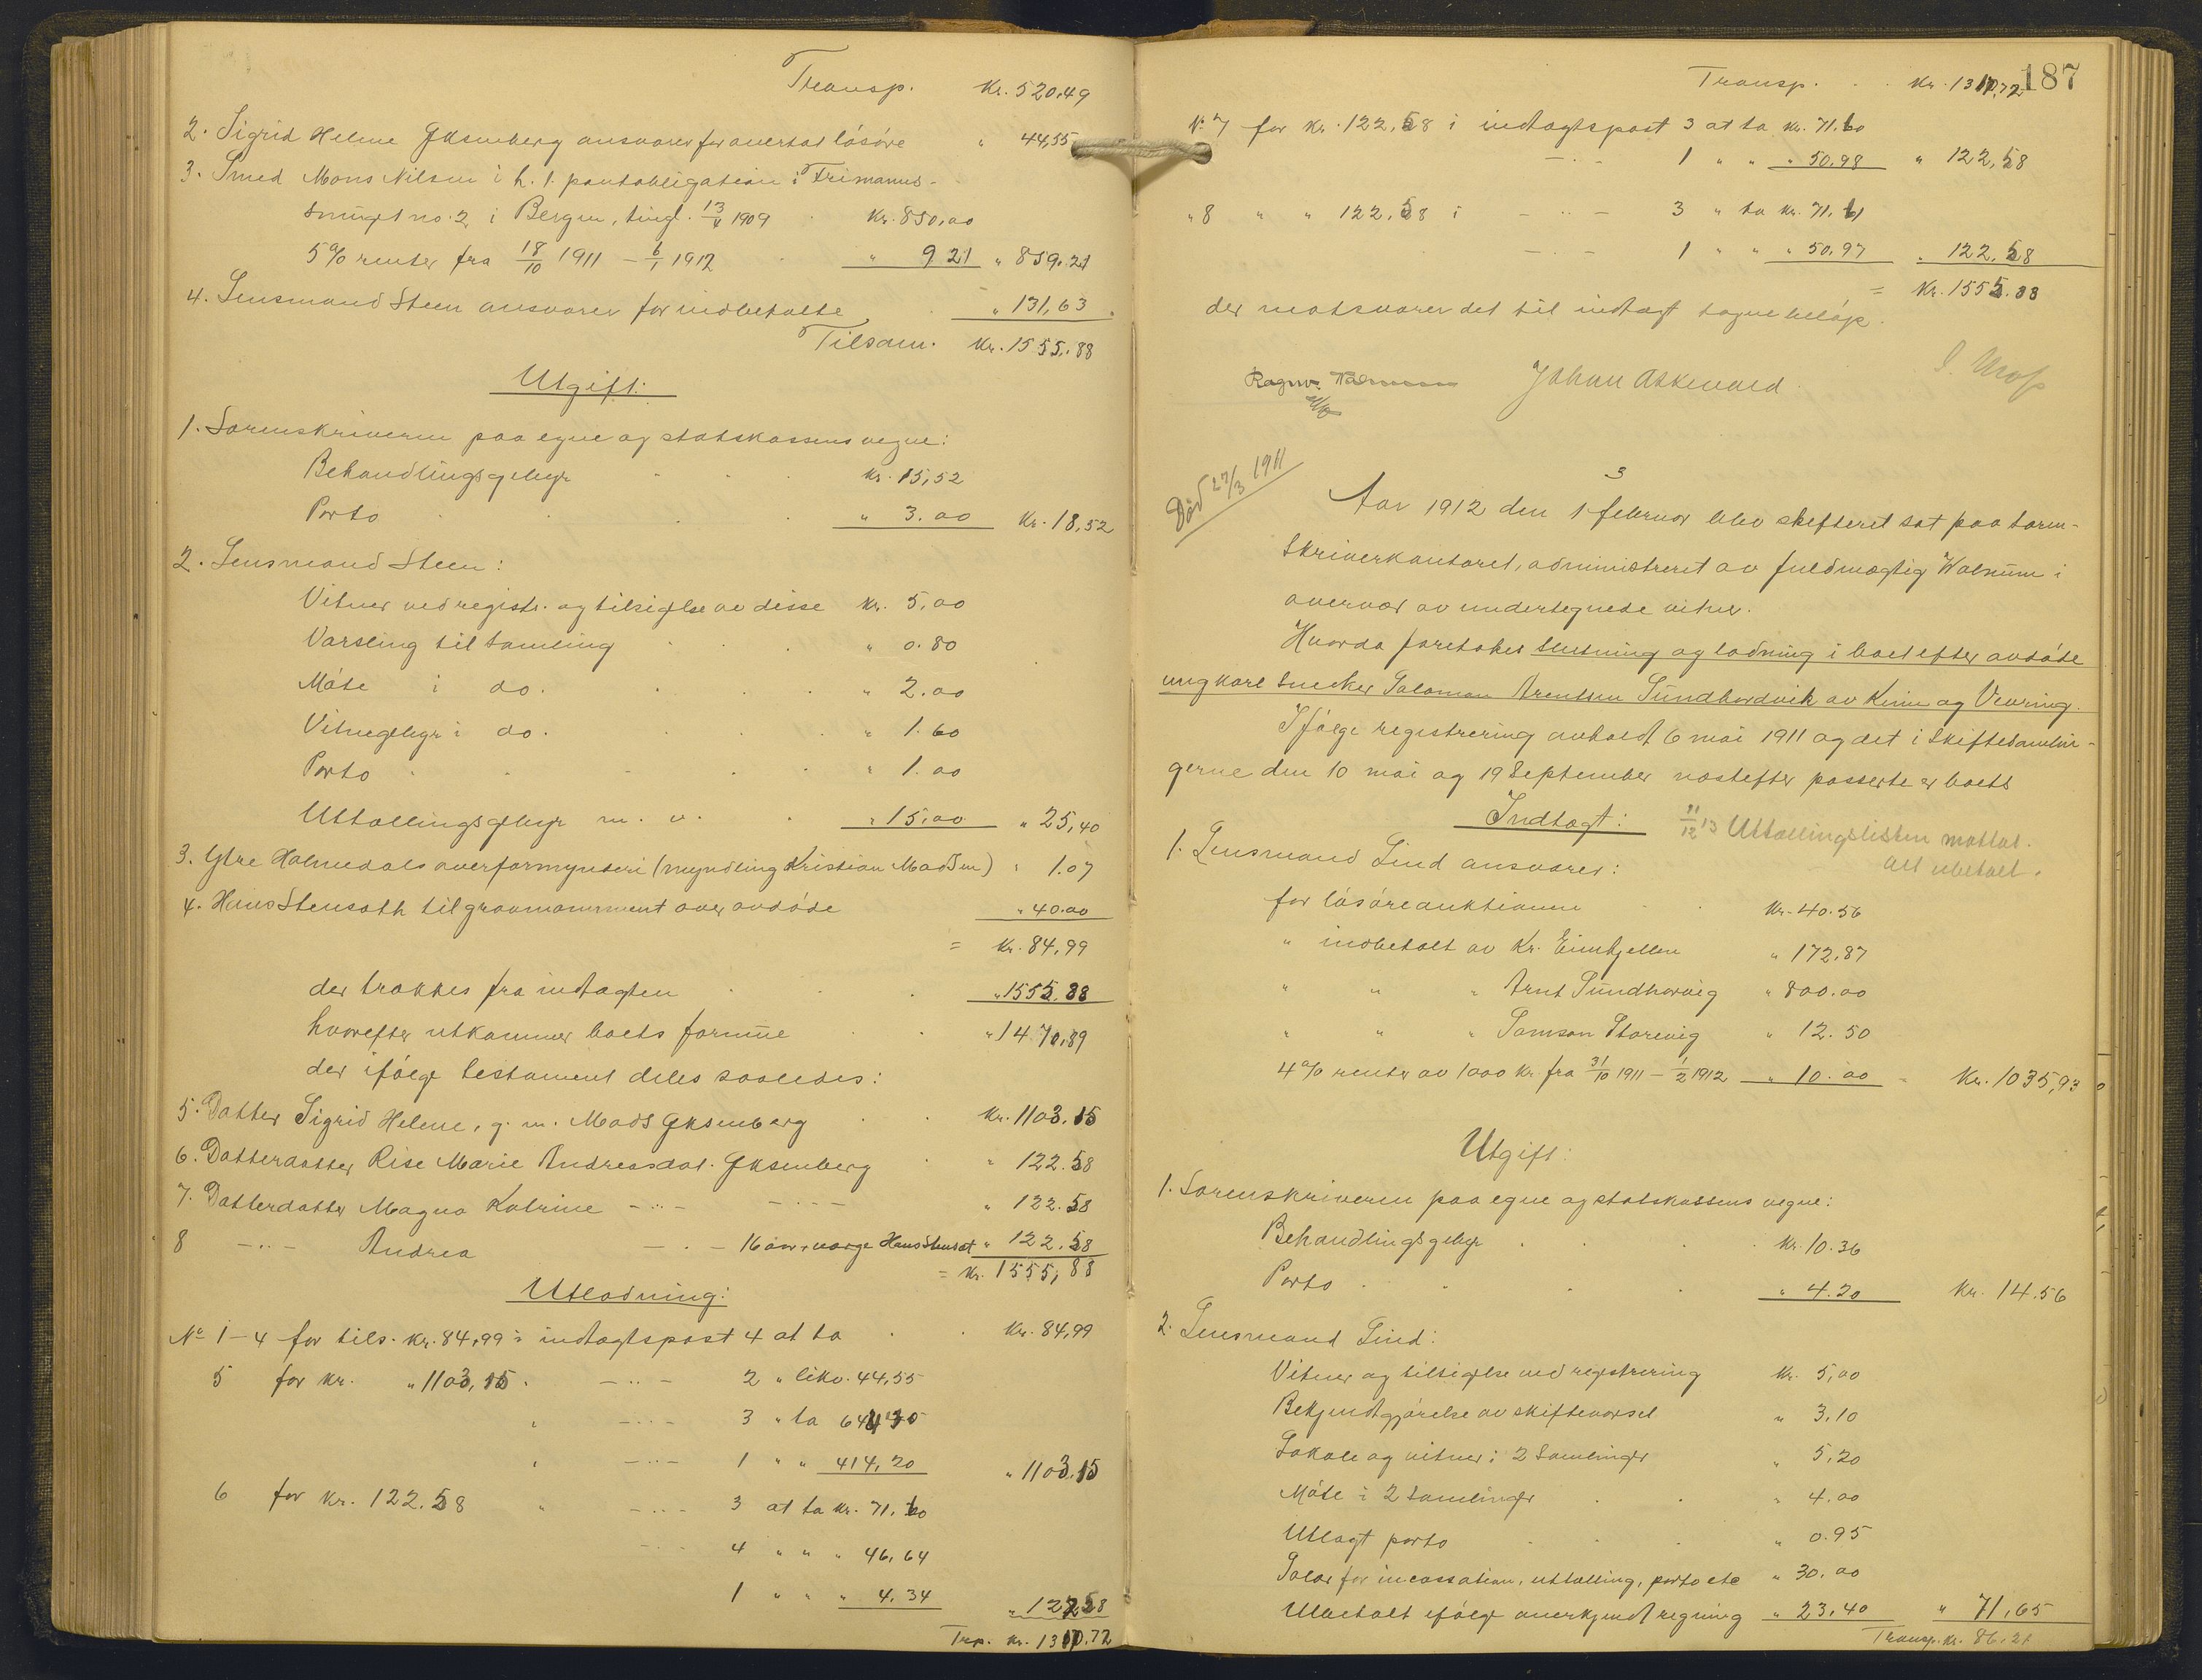 Transp. Kr. 520,49
2. Sigrid Helene Yksenberg ansvarer for overtat løsøre " 44,55
3. Smed Mons Nilsen i h. t. pantobligation i Frimanns-
smuget no. 2 i Bergen, tingl. 13/4 1909 Kr. 850,00
5% renter fra 18/10 1911 – 6/1 1912 " 9 21 " 859.21
4. Lensmand Steen ansvarer for indbetalte " 131,63
Tilsam. Kr. 1555,88
Utgift:
1. Sorenskriveren paa egne og statskassens vegne:
Behandlingsgebyr Kr. 15,52
Porto " 3.00 Kr. 18,52
2. Lensmand Steen:
Vitner ved registr. og tilsigelse av disse Kr. 5,00
Varsling til samling " 0.80
Møte i do. " 2.00
Vitnegebyr i do. " 1.60
Porto " 1.00
Uttællingsgebyr m. v. " 15,00 " 25,40
3. Ytre Holmedals overformynderi (myndling Kristian Madsen) " 1.07
4. Hans Stensæth til gravmonument over avdøde " 40.00
= Kr. 84,99
der trækkes fra indtægten " 1555.88
hvorefter utkommer boets formue " 1470,89
der ifølge testament deles saaledes:
5. Datter Sigrid Helene, g. m. Mads Yksenberg Kr. 1103.15
6. Datterdatter Rise Marie Andreasdat. Yksenberg " 122.58
7. Datterdatter Magna Katrine –"– –"– " 122.58
8 –"– Andrea –"– 16 aar, værge Hans Stensæt " 122.58
= Kr. 1555,88
Utlodning:
No 1–4 for tils. Kr. 84,99 i indtægtspost 4 at ta Kr. 84,99
5 for kr. " 1103,15 –"– 2 " likv. 44,55
" –"– 3 " ta 644 40
" –"– 1 " " 414,20 " 1103.15
6 for Kr. 122.58 " –"– 3 at ta Kr. 71.60
–"– 4 " " " 46,64
1 " " " 4,34 " 122.58
Trp. Kr. 1310.72
187
Transp. Kr. 1310,72
No 7 for Kr. 122,58 i indtægtspost 3 at ta Kr. 71.60
–"– 1 " " " 50,98 " 122,58
" 8 " " 122,58 i –"– 3 " ta Kr. 71,61
–"– 1 " " " 50,97 " 122.58
= Kr. 1555.88
der motsvarer det til indtægt tagne beløp.
Johan Askevold
Død 27/3 1911
3
Aar 1912 den 1 februar blev skifteret sat paa soren-
skriverkontoret, administreret av fuldmægtig Walnum i
overvær av undertegnede vitner.
Hvorda foretokes slutning og lodning i boet efter avdøde
ungkarl snekker Salomon Arentsen Sundhordvik av Kinn og Vevring.
Ifølge registrering avholdt 6 mai 1911 og det i skiftesamlin-
gerne den 10 mai og 19 September næstefter passerte er boets
Indtægt: 11/12 13 Uttællingslisten mottat.
alt utbetalt.
1. Lensmand Lind ansvarer:
for løsøreauktionen Kr. 40.56
" indbetalt av Kr. Eimhjellen " 172.87
" " " Arnt Sundhorvig " 800.00
" " " Samson Storevig " 12.50
4% renter av 1000 kr. fra 31/10 1911 – 1/2 1912 " 10.00 Kr. 1035,93
Utgift:
1. Sorenskriveren paa egne og statskassens vegne:
Behandlingsgebyr Kr. 10.36
Porto " 4.20 Kr. 14.56
2. Lensmand Lind:
Vitner og tilsigelse ved registrering Kr. 5,00
Bekjendtgjørelse av skiftevarsel " 3.10
Lokale og vitner i 2 samlinger " 5,20
Møte i 2 samlinger " 4,00
Utlagt porto " 0.95
Salær for incassation, uttælling, porto etc " 30.00
Utbetalt ifølge anerkjendt regning " 23,40 " 71,65
Transp. Kr. 86.21